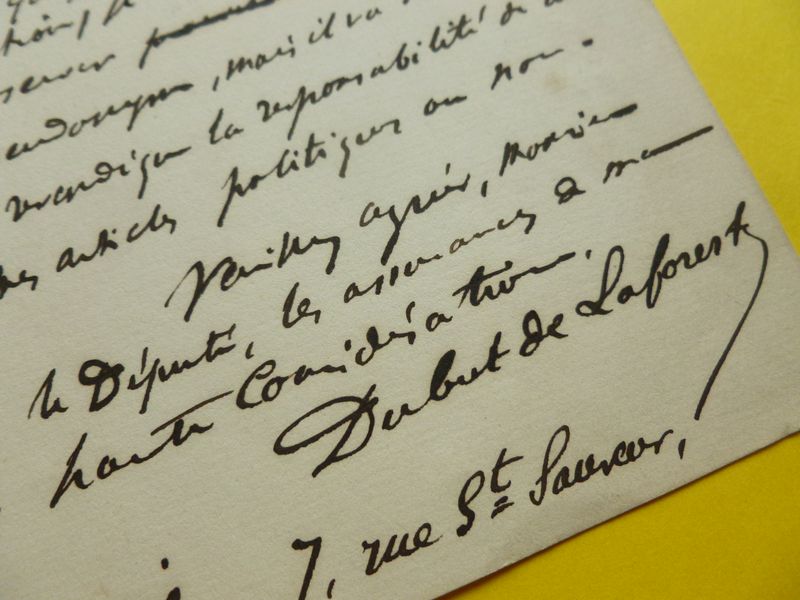 mais il va
revendiquer la responsabilité de
mes articles politiques ou non.
Veuillez agréer, Monsieur
le Député, les assurances de ma
haute considération.
Dubut de Laforest
7, rue St Sauveur,